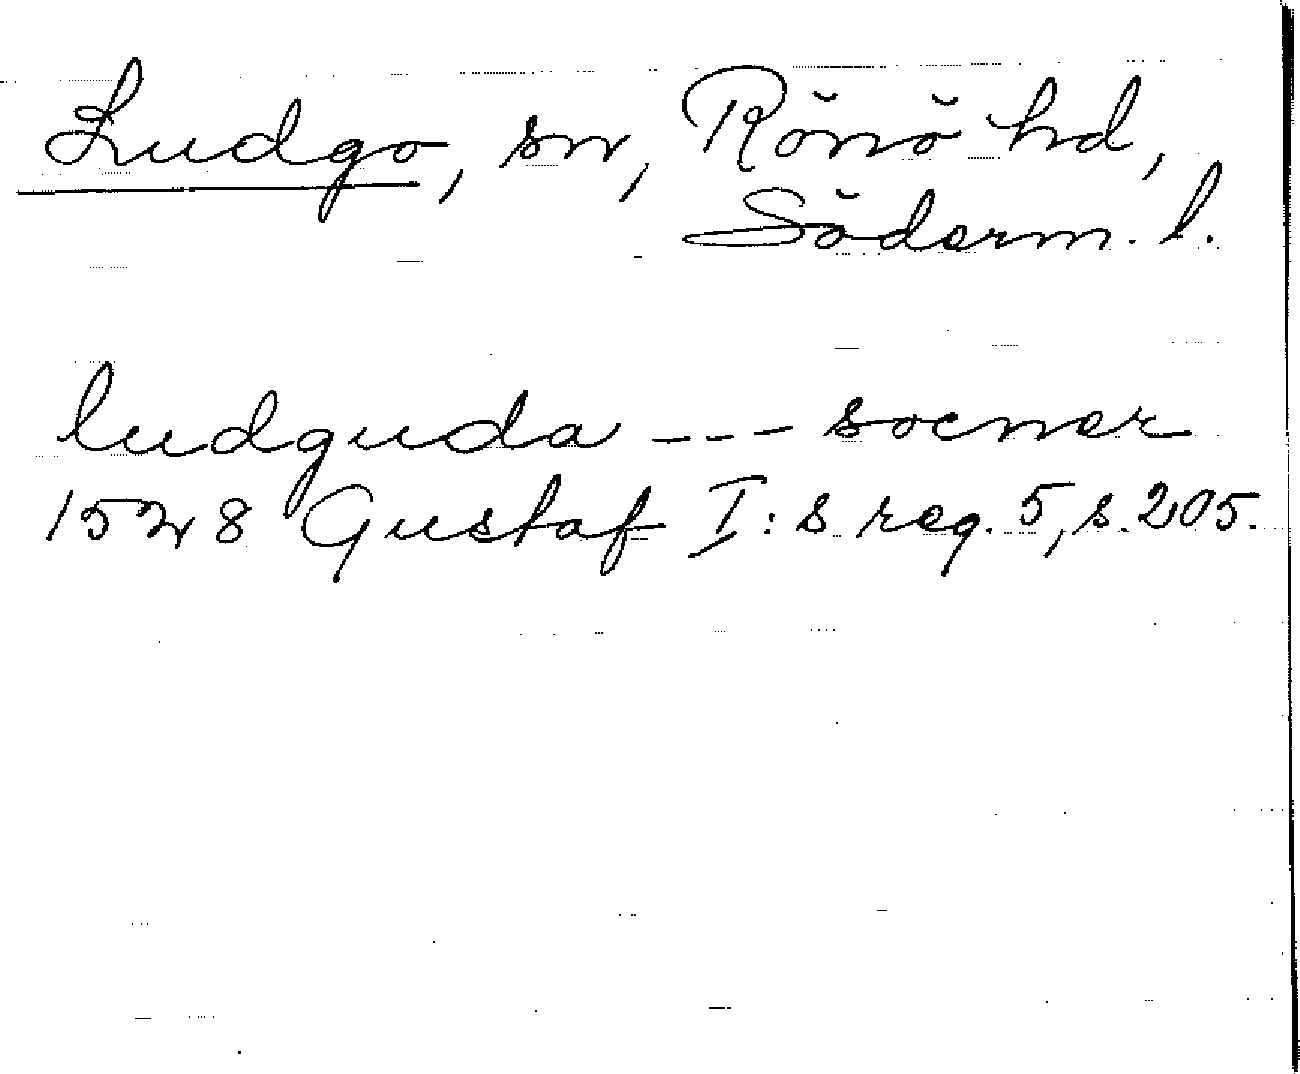 Ludgo, sn, Rönö hd,
Söderm. l.
ludguda --- socner
1528 Gustaf I:s reg. 5, s. 205.